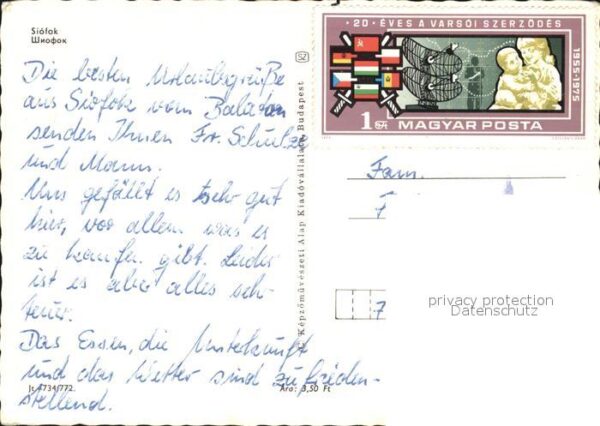 Siófok
Шиофок
Die besten Urlaubsgrüße
aus Siofok vom Balaton
senden Ihnen Fr. Schulz
und Mann.
Uns gefällt es sehr gut
hier, vor allem was es
zu kaufen gibt. Leider
ist es aber alles seh-
teuer.
Das Essen, die Unterkunft
und das Wetter sind zufrieden-
stellend.
Jt 4734/772.
Ára: 3,50 Ft
Képzőművészeti Alap Kiadóvállalata, Budapest
SZ
· 20 · ÉVES A VARSÓI SZERZŐDÉS
1955-1975
1 Ft
MAGYAR POSTA
Fam.
F
7
privacy protection
Datenschutz